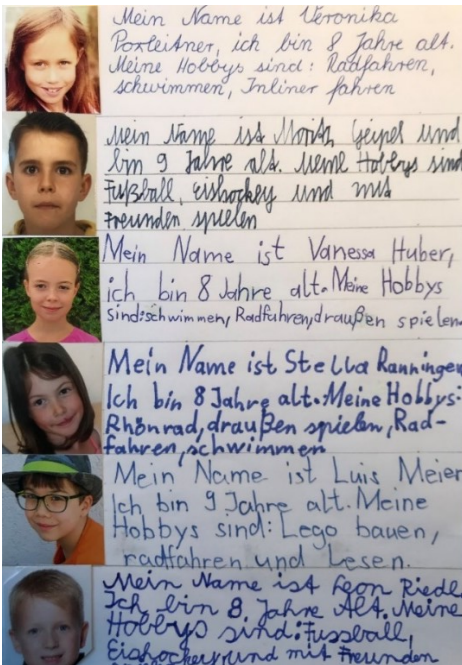 Mein Name ist Veronika
Poxleitner, ich bin 8 Jahre alt.
Meine Hobbys sind: Radfahren,
schwimmen, Inliner fahren
Mein Name ist Moritz Geipel und
bin 9 Jahre alt. Meine Hobbys sind
Fußball, Eishockey und mit
Freunden spielen
Mein Name ist Vanessa Huber,
ich bin 8 Jahre alt. Meine Hobbys
sind:schwimmen, Radfahren,draußen spielen
Mein Name ist Stella Ranninger
Ich bin 8 Jahre alt. Meine Hobbys:
Rhönrad, draußen spielen, Rad-
fahren, schwimmen
Mein Name ist Luis Meier
Ich bin 9 Jahre alt. Meine
Hobbys sind: Lego bauen,
radfahren und Lesen.
Mein Name ist Leon Riedl
Ich bin 8 Jahre Alt. Meine
Hobbys sind: Fussball,
Eishockey und mit Freunden